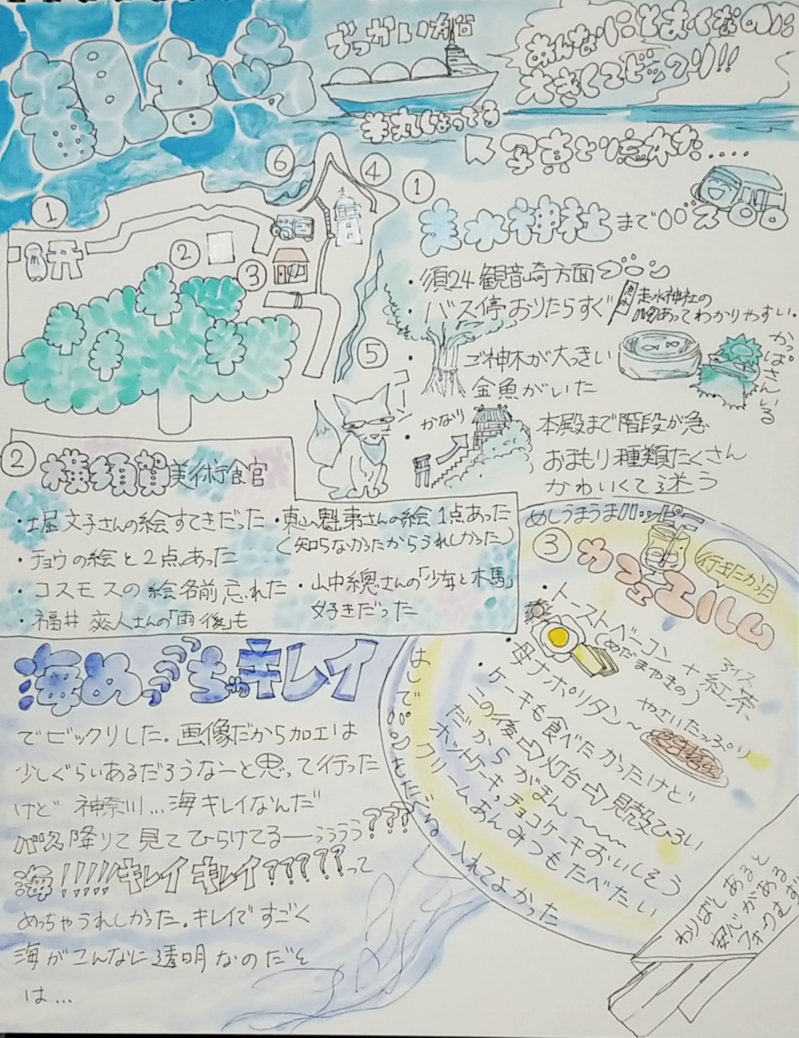 観音崎
でっかい船
あんなにとおくなのに
大きくてビックリ!!
丸しょってる
写真とり忘れた....
① ② ③ ④ ⑤ ⑥
① 走水神社までバス
・須24 観音崎方面 ブーン
・バス停おりたらすぐ
走水神社の
あってわかりやすい。
・ご神木が大っきい
金魚がいた
かっぱさんいる
・かなり
本殿まで階段が急
おまもり種類たくさん
かわいくて迷う
コーン
② 横須賀美術館
・土屋文子さんの絵すてきだった
・チョウの絵と2点あった
・コスモスの絵名前忘れた
・福井 さんの「雨後」も
・東山魁夷さんの絵1点あった
(知らなかったからうれしかった)
・山中 さんの「少年と木馬」
好きだった
めしうまうまハッピー
③ カフェエルム
行きたかった
・トーストベーコン+アイス紅茶、
(めだまやきの)
・母ナポリタン〜
やさいたっぷり
・ケーキも食べたかったけど
この後⇨灯台⇨見殻ひろい
だからがまん〜〜〜
ホットケーキ,チョコケーキおいしそう
クリームあんみつもたべたい
入れてよかった
わりばしあると
安心がある
フォークむず
海めっちゃキレイ
でビックリした。画像だから加工は
少しぐらいあるだろうなーと思って行った
けど 神奈川...海キレイなんだ
が、降りて見てひらけてるーぅぅぅぅ???
海!!!!!キレイキレイ?????って
めっちゃうれしかった。キレイですごく
海がこんなに透明なのだと
は...